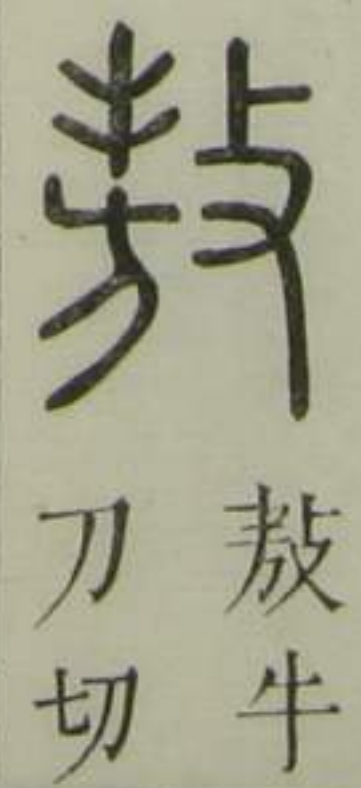 敖
敖牛
刀切